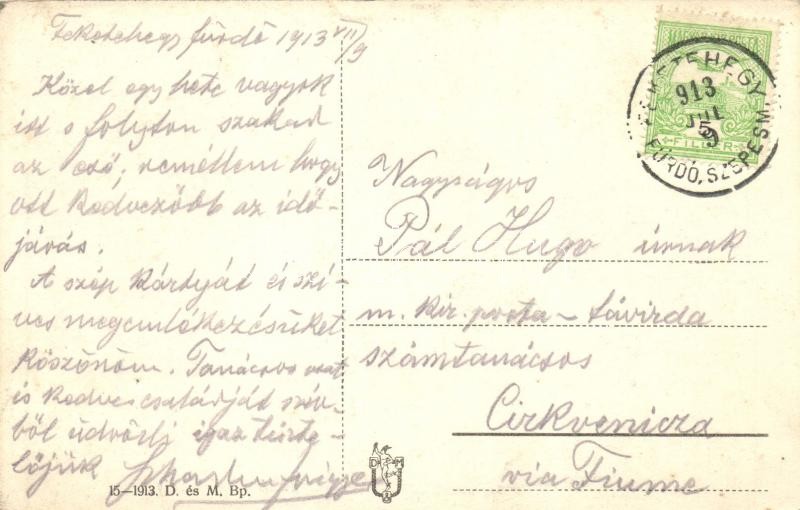 Feketehegy fürdő 1913 VII/9
Közel egy hete vagyok
itt s folyton szakad
az eső; remélem hogy
ott kedvezőbb az idő-
járás.
A szép kártyát és szí-
ves megemlékezésüket
köszönöm. Tanácsos urat
és kedves családját szív-
ből üdvözli igaz tiszte-
lőjük
15—1913. D. és M. Bp.
D M
FEKETEHEGY
913
JUL
9
FÜRDŐ, SZEPESM
FILLÉR
Nagyságos
Pál Hugo úrnak
m. kir. posta-távirda
számtanácsos
Cirkvenicza
via Fiume